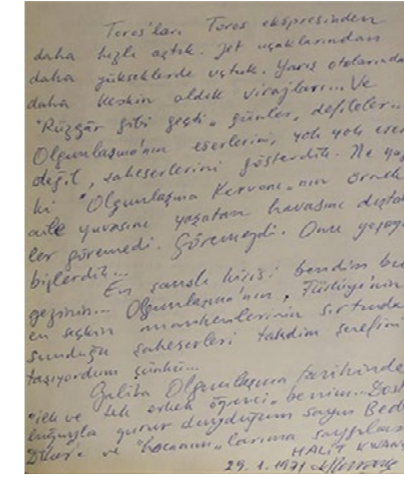 Toros'ları Toros ekspresinden
daha hızlı aştık. Jet uçaklarından
daha yükseklerde uçtuk. Yarış otolarından
daha keskin aldık virajları... Ve
"Rüzgâr gibi geçti" günler, defileler...
Olgunlaşma'nın eserlerini, yok yok eser
değil, şaheserlerini gösterdik. Ne yaz
ki "Olgunlaşma Kervanı"nın örnek
aile yuvasını yaşatan havasını dıştaki
ler göremedi. Göremezdi. Onu yaşaya
bizlerdik...
En şanslı kişisi bendim bu
gezinin... Olgunlaşma'nın, Türkiye'nin
en seçkin mankenlerinin sırtında
sunduğu şaheserleri takdim şerefini
taşıyordum çünkü...
Galiba Olgunlaşma tarihinde
"ilk ve tek erkek öğrenci" benim... Dost
luğuyla gurur duyduğum sayın
ve "hocanım"larıma saygılar
HALİT KIVANÇ
29.1.1971